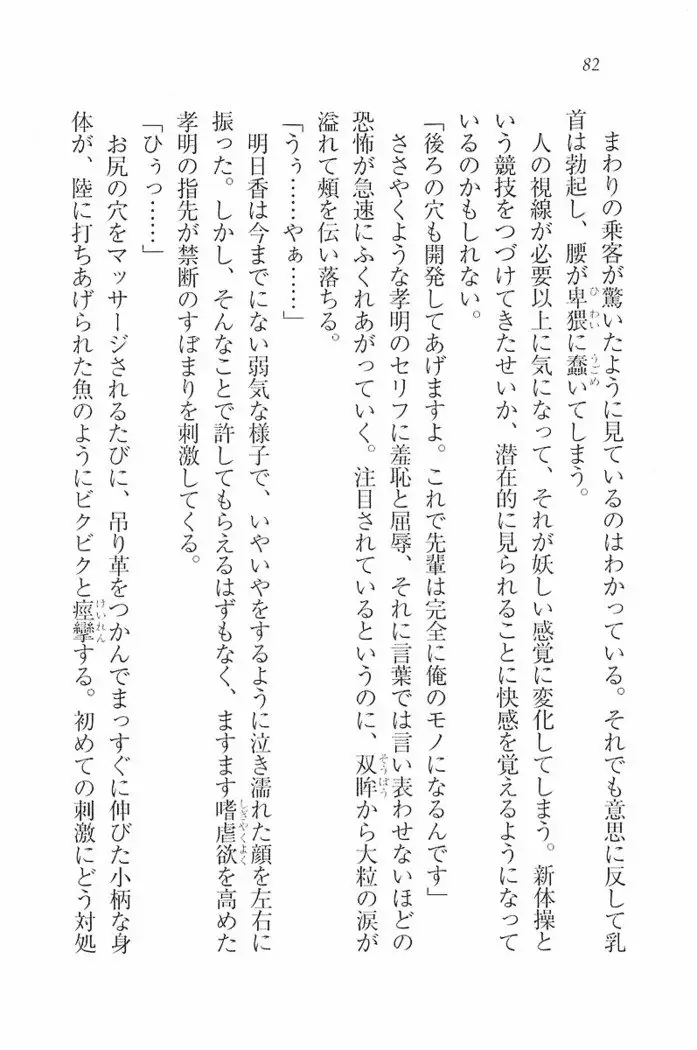 82
まわりの乗客が驚いたように見ているのはわかっている。それでも意思に反して乳
首は勃起し、腰が卑猥に蠢いてしまう。
人の視線が必要以上に気になって、それが妖しい感覚に変化してしまう。新体操と
いう競技をつづけてきたせいか、潜在的に見られることに快感を覚えるようになって
いるのかもしれない。
「後ろの穴も開発してあげますよ。これで先輩は完全に俺のモノになるんです」
ささやくような孝明のセリフに羞恥と屈辱、それに言葉では言い表わせないほどの
恐怖が急速にふくれあがっていく。注目されているというのに、双眸から大粒の涙が
溢れて頰を伝い落ちる。
「うぅ……やぁ……」
明日香は今までにない弱気な様子で、いやいやをするように泣き濡れた顔を左右に
振った。しかし、そんなことで許してもらえるはずもなく、ますます嗜虐欲を高めた
孝明の指先が禁断のすぼまりを刺激してくる。
「ひぅっ……」
お尻の穴をマッサージされるたびに、吊り革をつかんでまっすぐに伸びた小柄な身
体が、陸に打ちあげられた魚のようにビクビクと痙攣する。初めての刺激にどう対処